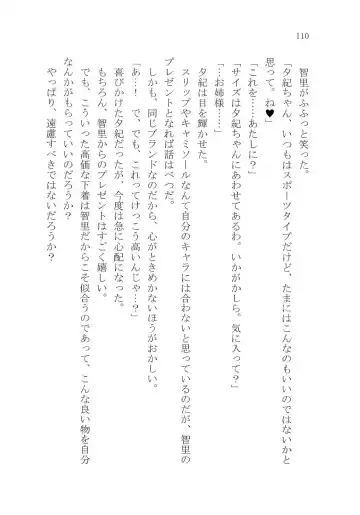 110
智里がふふっと笑った。
「夕紀ちゃん、いつもはスポーツタイプだけど、たまにはこんなのもいいのではないかと
思って。ね♥」
「これを……あたしに？」
「サイズは夕紀ちゃんにあわせてあるわ。いかがかしら。気に入って？」
「……お姉様……」
夕紀は目を輝かせた。
スリップやキャミソールなんて自分のキャラには合わないと思っているのだが、智里の
プレゼントとなれば話はべつだ。
しかも、同じブランドなのだから、心がときめかないほうがおかしい。
「あ…！　で、でも、これってけっこう高いんじゃ…？」
喜びかけた夕紀だったが、今度は急に心配になった。
もちろん、智里からのプレゼントはすごく嬉しい。
でも、こういった高価な下着は智里だからこそ似合うのであって、こんな良い物を自分
なんかがもらっていいのだろうか？
やっぱり、遠慮すべきではないだろうか？